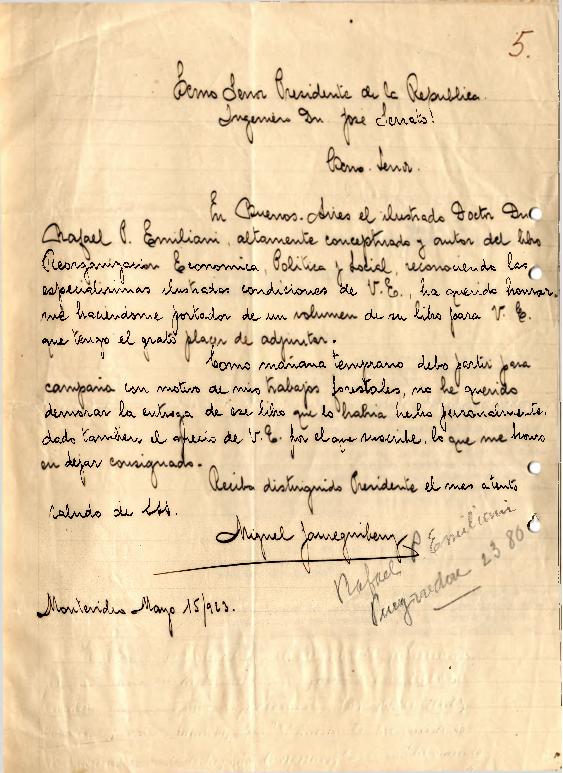 5.
Exmo Senor Presidente de la Republica.
Ingeniero Dn. José Serrato!
Exmo. Senor.
En Buenos-Aires el ilustrado Doctor Dn
Rafael P. Emiliani, altamente conceptuado y autor del libro
Reorganizacion Economica, Politica y Social, reconociendo las
especialisimas ilustradas condiciones de V.E., ha querido honrar-
me haciendome portador de un volumen de su libro para V. E.
que tengo el grato placer de adjuntar.
Como mañana temprano debo partir para
campaña con motivo de mis trabajos forestales, no he querido
demorar la entrega de ese libro que lo habia hecho personalmente,
dado tambien, el aprecio de V.E. por el que suscribe, lo que me honro
en dejar consignado.
Reciba distinguido Presidente el mas atento
saludo de
Miguel Jaureguiberry
Rafael P. Emiliani
Pueyrredon 2380
Montevideo Mayo 15/923.